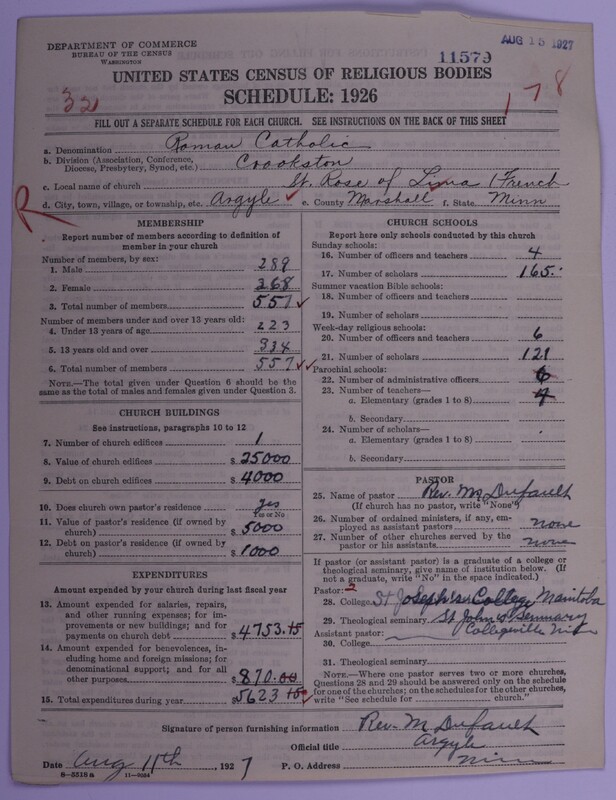 DEPARTMENT OF COMMERCE
BUREAU OF THE CENSUS
WASHINGTON
11579
AUG 15 1927
UNITED STATES CENSUS OF RELIGIOUS BODIES
SCHEDULE: 1926
1 78
FILL OUT A SEPARATE SCHEDULE FOR EACH CHURCH. SEE INSTRUCTIONS ON THE BACK OF THIS SHEET
a. Denomination Roman Catholic
b. Division (Association, Conference, Diocese, Presbytery, Synod, etc.) Crookston
c. Local name of church St. Rose of Lima (French
d. City, town, village, or township, etc. Argyle e. County Marshall f. State Minn
R
MEMBERSHIP
Report number of members according to definition of
member in your church
Number of members, by sex:
1. Male 289
2. Female 268
3. Total number of members 557
Number of members under and over 13 years old:
4. Under 13 years of age 223
5. 13 years old and over 334
6. Total number of members 557
NOTE.—The total given under Question 6 should be
same as the total of males and females given under Question 3.
CHURCH BUILDINGS
See instructions, paragraphs 10 to 12
7. Number of church edifices 1
8. Value of church edifices $ 25000
9. Debt on church edifices $ 4000
10. Does church own pastor's residence? yes
Yes or No
11. Value of pastor's residence (if owned by
church) $ 5000
12. Debt on pastor's residence (if owned by
church) $ 1000
EXPENDITURES
Amount expended by your church during last fiscal year
13. Amount expended for salaries, repairs,
and other running expenses; for im-
provements or new buildings; and for
payments on church debt $ 4753.15
14. Amount expended for benevolences, in-
cluding home and foreign missions; for
denominational support; and for all
other purposes $ 870.00
15. Total expenditures during year $ 5623 15
CHURCH SCHOOLS
Report here only schools conducted by this church
Sunday schools:
16. Number of officers and teachers 4
17. Number of scholars 165
Summer vacation Bible schools:
18. Number of officers and teachers
19. Number of scholars
Week-day religious schools:
20. Number of officers and teachers 6
21. Number of scholars 121
Parochial schools:
22. Number of administrative officers
23. Number of teachers—
a. Elementary (grades 1 to 8)
b. Secondary
24. Number of scholars—
a. Elementary (grades 1 to 8)
b. Secondary
PASTOR
25. Name of pastor Rev. M. Dufault
(If church has no pastor, write "None")
26. Number of ordained ministers, if any, em-
ployed as assistant pastors none
27. Number of other churches served by the
pastor or his assistants none
If pastor (or assistant pastor) is a graduate of a college or
theological seminary, give name of institution below. (If
not a graduate, write "No" in the space indicated.)
Pastor: 2
28. College St Joseph's College Manitoba
29. Theological seminary St John's Seminary
Assistant pastor: Collegeville Minn
30. College
31. Theological seminary
NOTE.—Where one pastor serves two or more churches,
Questions 28 and 29 should be answered only on the schedule
for one of the churches; on the schedules for the other churches,
write "See schedule for church."
Signature of person furnishing information Rev. M Dufault
Official title Argyle
Date Aug 11th, 1927 P. O. Address Minn
8-5518 a 11-9034